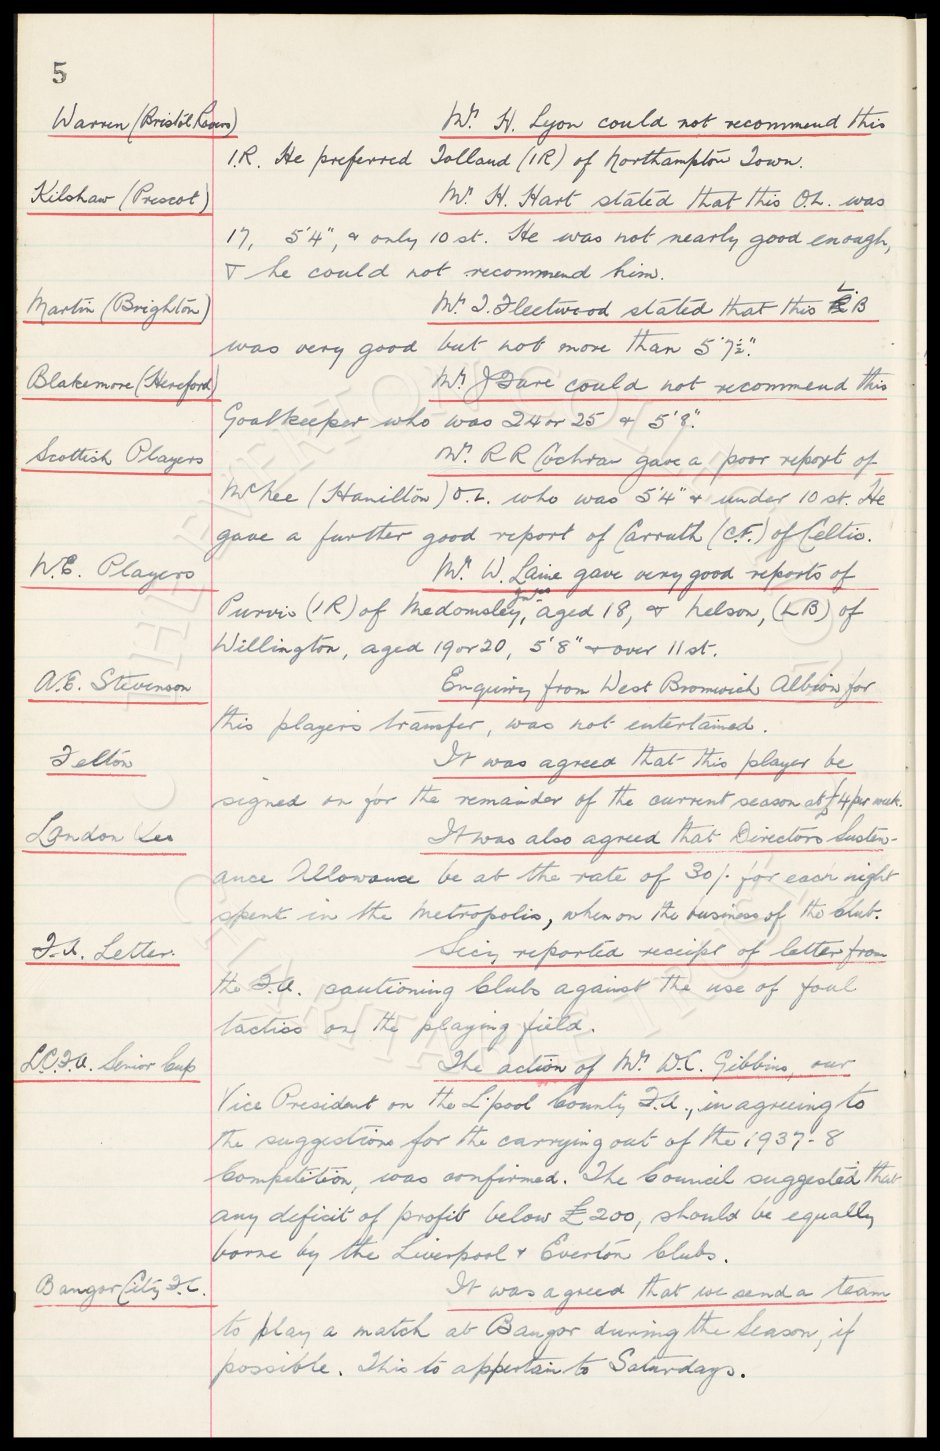 5
Warren (Bristol Rovers) Mr. H. Lyon could not recommend this
I.R. He preferred Tolland (IR) of Northampton Town.
Kilshaw (Prescot) Mr. H. Hart stated that this O.L. was
17, 5'4", & only 10 st. He was not nearly good enough,
& he could not recommend him.
Martin (Brighton) Mr. T. Fleetwood stated that this L.B
was very good but not more than 5'7½".
Blakemore (Hereford) Mr. J Fare could not recommend this
Goalkeeper who was 24 or 25 & 5'8".
Scottish Players Mr. R R Cochran gave a poor report of
McPhee (Hamilton) O.L. who was 5'4" & under 10 st. He
gave a further good report of Carruth (C.F.) of Celtic.
N.E. Players Mr. W. Laine gave very good reports of
Purvis (IR) of Medomsley Jnrs, aged 18, & Nelson, (LB) of
Willington, aged 19 or 20, 5'8" & over 11 st.
A.E. Stevenson Enquiry from West Bromwich Albion for
this player's transfer, was not entertained.
Felton It was agreed that this player be
signed on for the remainder of the current season at £4 per week.
London It was also agreed that Directors Susten-
ance Allowance be at the rate of 30/- for each night
spent in the Metropolis, when on the business of the club.
F.A. Letter. Secy reported receipt of letter from
the F.A. cautioning Clubs against the use of foul
tactics on the playing field.
L.C.F.A. Senior Cup The action of Mr. W.C. Gibbins, our
Vice President on the L'pool County F.A., in agreeing to
the suggestions for the carrying out of the 1937-8
Competition, was confirmed. The Council suggested that
any deficit of profit below £200, should be equally
borne by the Liverpool & Everton Clubs.
Bangor City F.C. It was agreed that we send a team
to play a match at Bangor during the Season, if
possible. This to appertain to Saturdays.